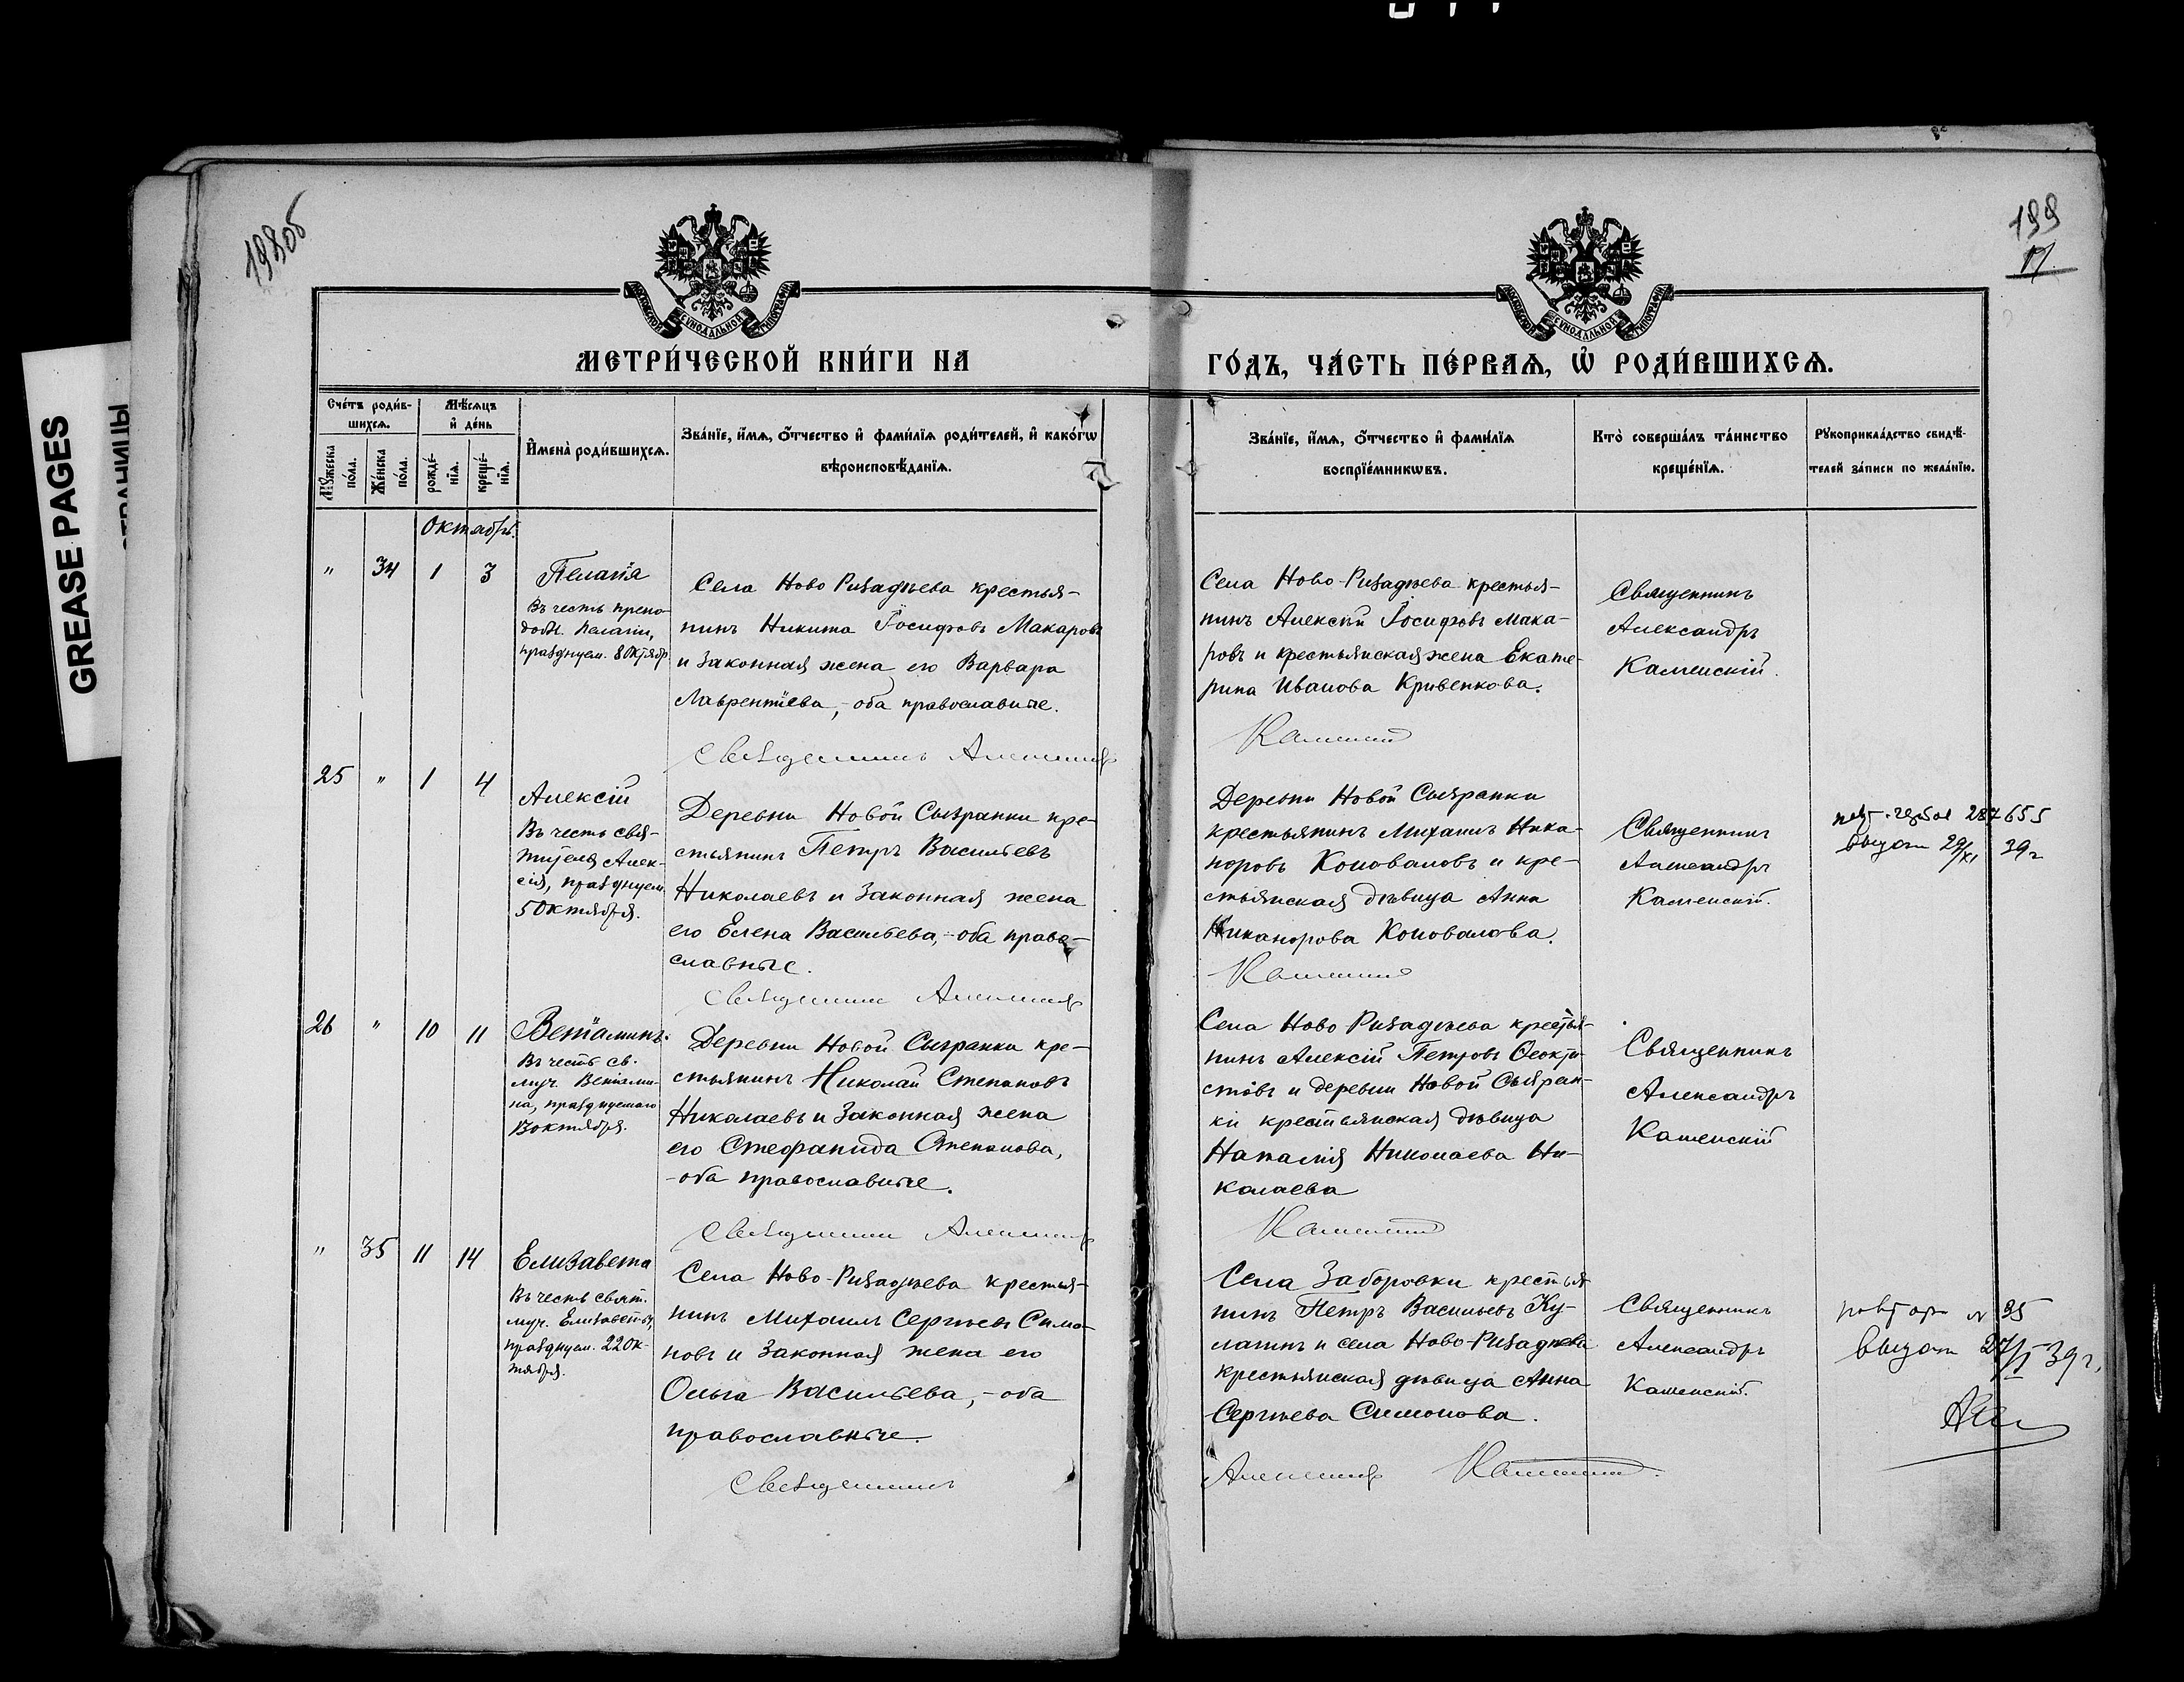 198об
199
МОСКОВСКОЙ СѴНОДАЛЬНОЙ ТИПОГРАФІИ
МОСКОВСКОЙ СѴНОДАЛЬНОЙ ТИПОГРАФІИ
МЕТРИ́ЧЕСКОЙ КНИ́ГИ НА
ГО́ДЪ, ЧА́СТЬ ПЕ́РВАѦ, Ѡ҆ РОДИ́ВШИХСѦ.
Сче́тъ роди́в-
шихсѧ.
Мѣ́сѧцъ
и҆ де́нь
Мꙋ́жеска
по́ла.
Же́нска
по́ла.
рожде́-
нїѧ.
креще́-
нїѧ.
И҆мена̀ роди́вшихсѧ.
Зва́нїе, и҆́мѧ, ѻ҆́тчество и҆ фами́лїѧ роди́телей, и҆ како́гѡ
вѣроисповѣ́данїѧ.
Зва́нїе, и҆́мѧ, ѻ҆́тчество и҆ фами́лїѧ
воспрїе́мникѡвъ.
Кто̀ соверша́лъ та́инство
креще́нїѧ.
Рꙋкоприкла́дство свидѣ́-
телей за́писи по жела́нїю.
Октябрь.
" 34 1 3
Пелагія
Въ честь препо-
доб. Пелагіи,
празднуем. 8 Октябр
Села Ново Ризадѣева крестья-
нинъ Никита Іосифовъ Макаровъ
и законная жена его Варвара
Лаврентіева, - оба православные.
Священникъ Александръ
Села Ново-Ризадѣева крестья-
нинъ Алексѣй Іосифовъ Мака-
ровъ и крестьянская жена Екате-
рина Иванова Кривенкова.
Каменскій
Священникъ
Александръ
Каменскій.
25 " 1 4
Алексій
Въ честь свя-
тителя Алек-
сія, празднуем.
5 Октября.
Деревни Новой Сызранки кре-
стьянинъ Петръ Васильевъ
Николаевъ и законная жена
его Елена Васильева, - оба право-
славные.
Священникъ Александръ
Деревни Новой Сызранки
крестьянинъ Михаилъ Ника-
норовъ Коноваловъ и кре-
стьянская дѣвица Анна
Никанорова Коновалова.
Каменскій
Священникъ
Александръ
Каменскій.
287655
выдан 29/XI 39г
26 " 10 11
Веніаминъ.
Въ честь св.
муч. Веніами-
на, празднуемаго
13 октября.
Деревни Новой Сызранки кре-
стьянинъ Николай Степановъ
Николаевъ и законная жена
его Стефанида Степанова,
- оба православные.
Священникъ Александръ
Села Ново Ризадѣева крестья-
нинъ Алексій Петровъ Ѳеокти-
стовъ и деревни Новой Сызран-
ки крестьянская дѣвица
Наталія Николаева Ни-
колаева
Каменскій
Священникъ
Александръ
Каменскій
" 35 11 14
Елизавета
Въ честь свят.
муч. Елизаветы,
празднуем. 22 Ок-
тября.
Села Ново-Ризадѣева крестья-
нинъ Михаилъ Сергѣевъ Симо-
новъ и законная жена его
Ольга Васильева, - оба
православные.
Священникъ
Села Заборовки крестья
нинъ Петръ Васильевъ Ку-
лагинъ и села Ново-Ризадѣева
крестьянская дѣвица Анна
Сергѣева Симонова.
Александръ Каменскій.
Священникъ
Александръ
Каменскій.
повтор N 35
выдан 27/I 39г,
GREASE PAGES
СТРАНИЦЫ